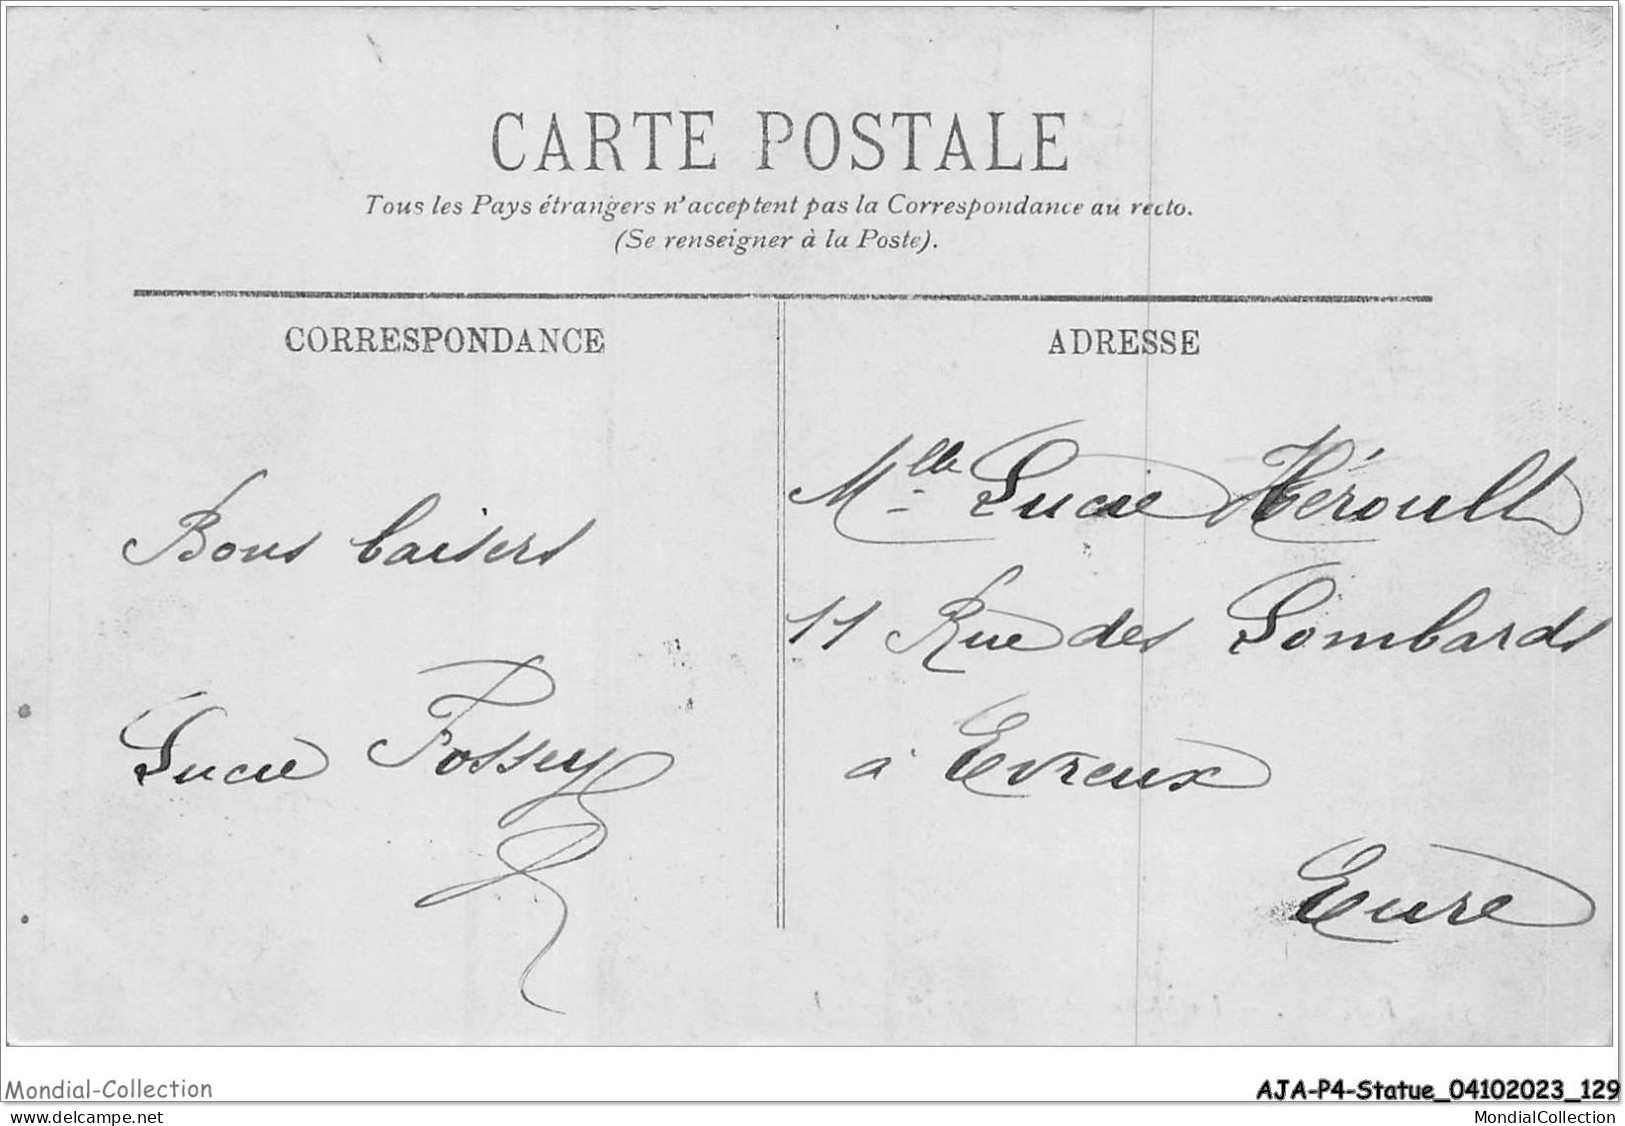 CARTE POSTALE
Tous les Pays étrangers n'acceptent pas la Correspondance au recto.
(Se renseigner à la Poste).
CORRESPONDANCE
Bons baisers
Lucie Fossey
ADRESSE
Mlle Lucie Héroult
11 Rue des Lombards
à Evreux
Eure
Mondial-Collection
AJA-P4-Statue_04102023_129
www.delcampe.net
MondialCollection